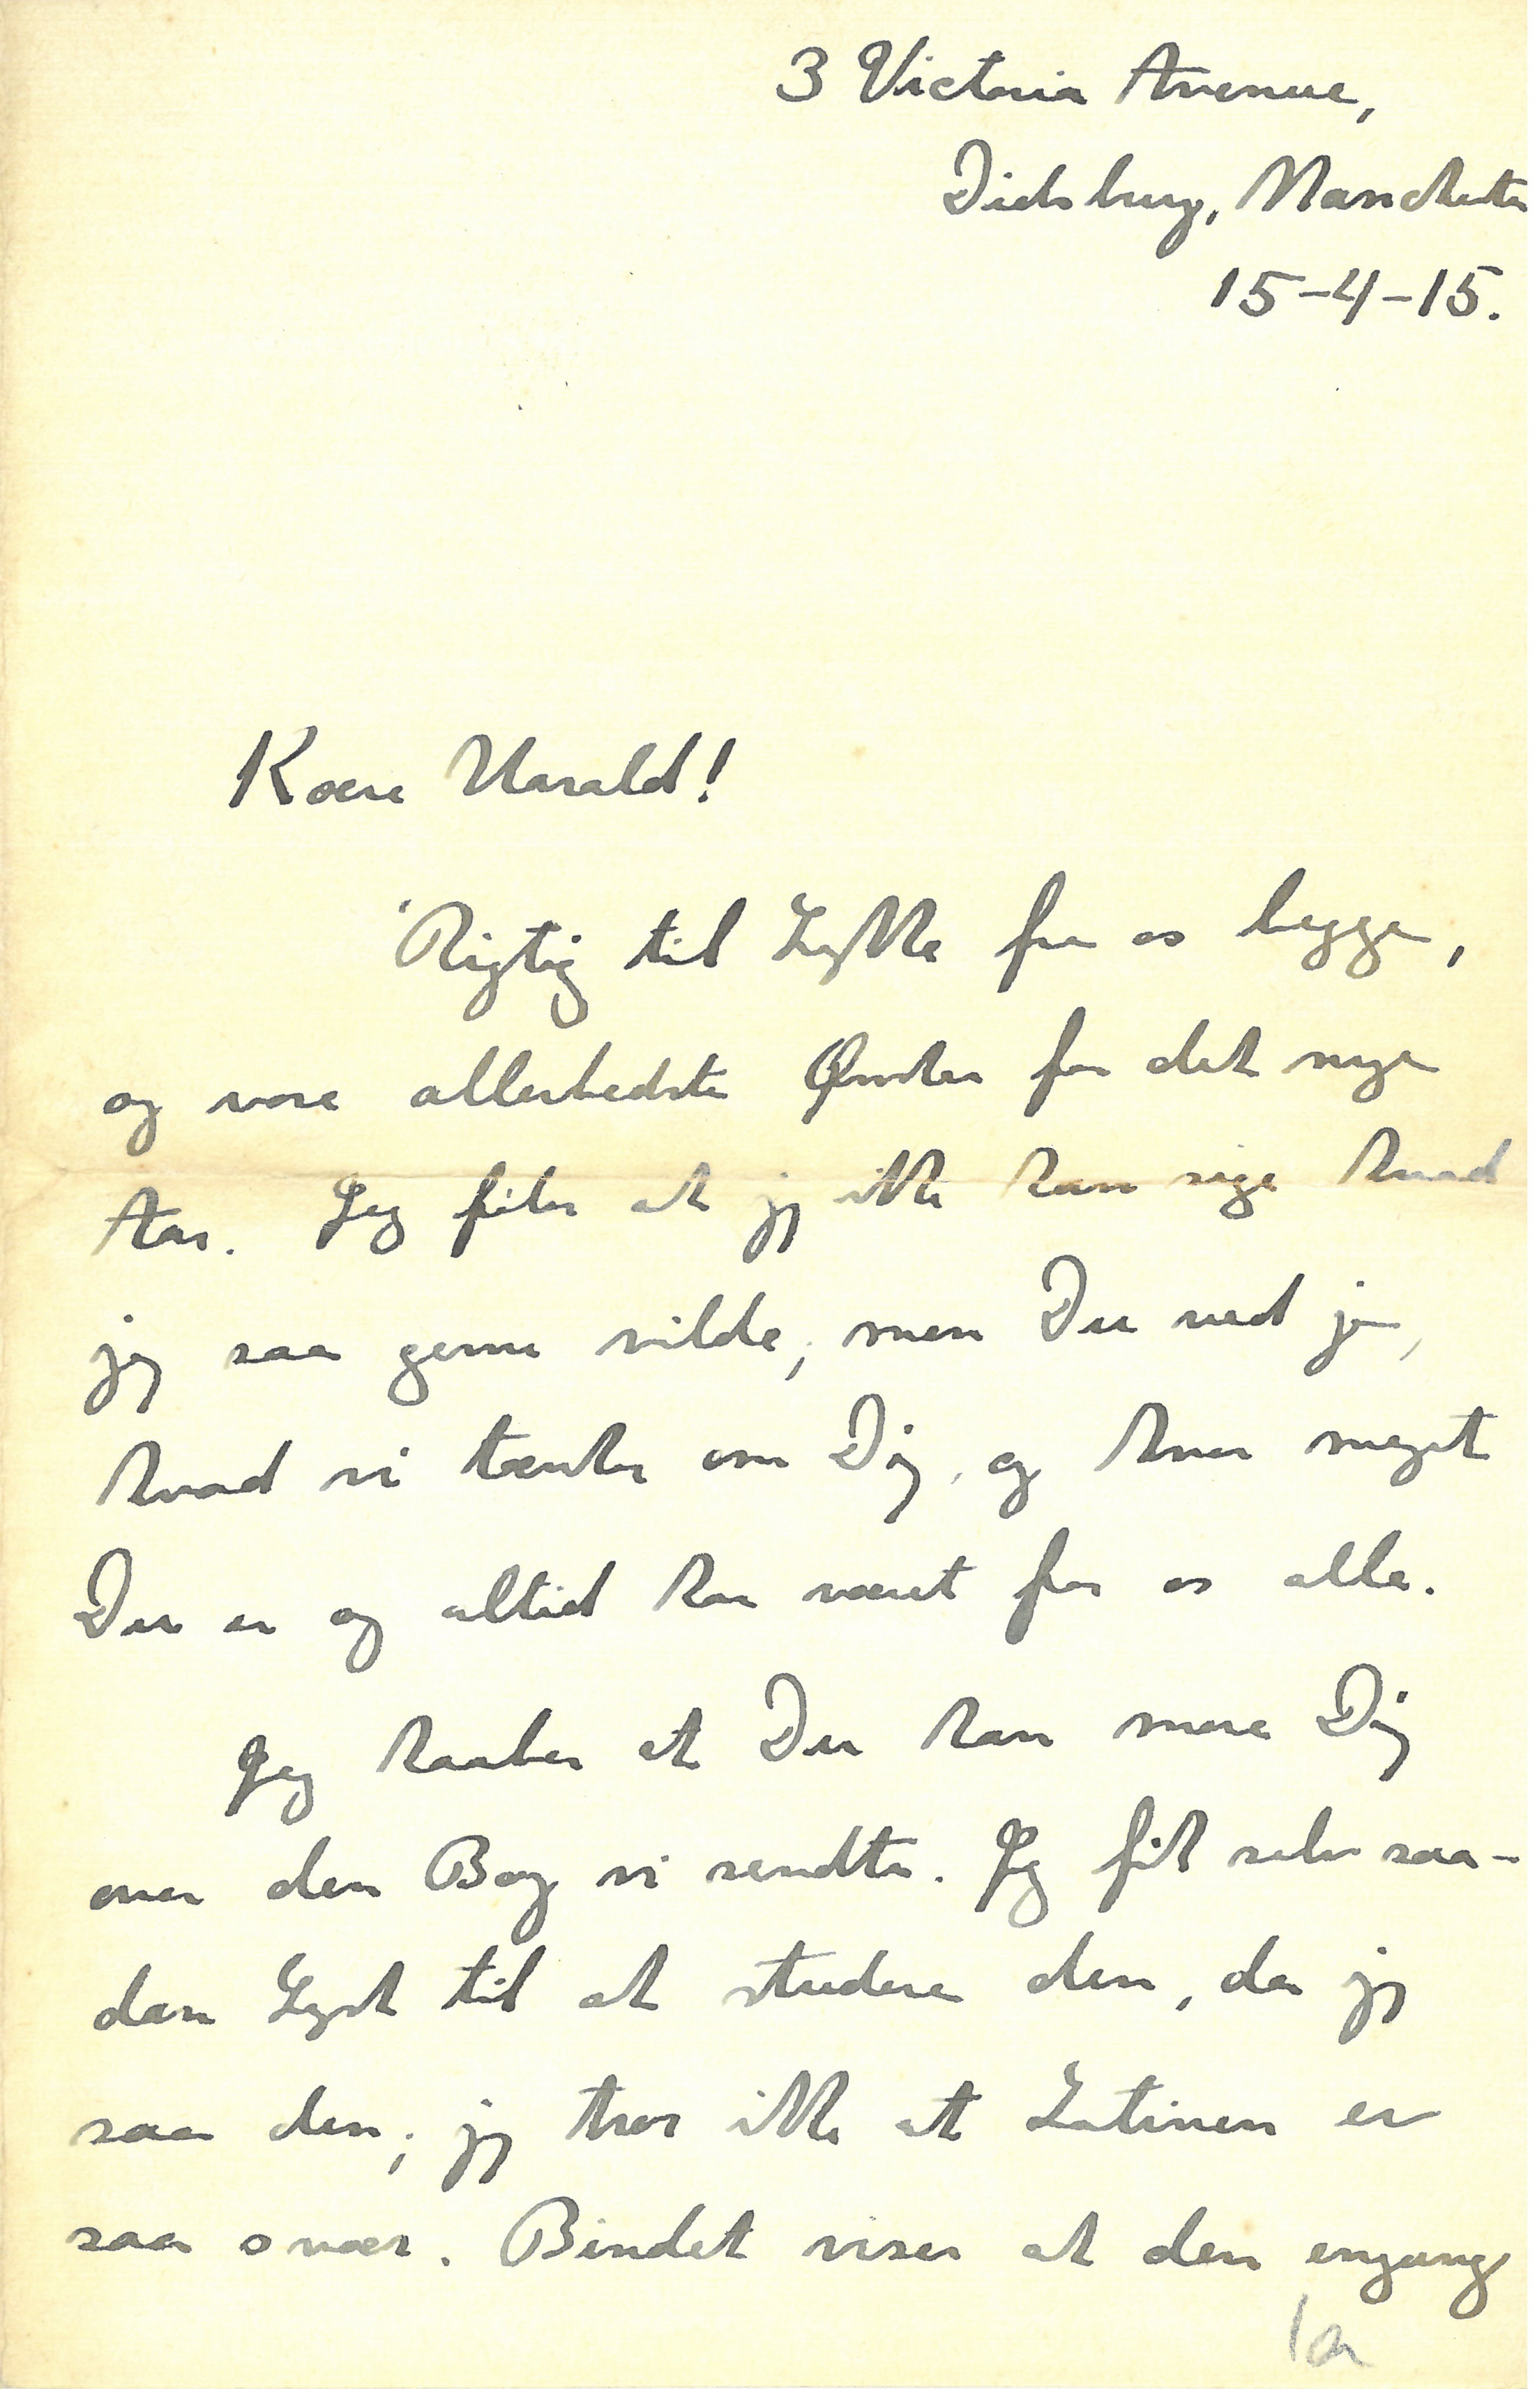 3 Victoria Avenue,
Didsbury, Manchester
15-4-15.
Kære Harald!
Rigtig til Lykke fra os begge,
og vore allerbedste Ønsker for det nye
Aar. Jeg føler at jeg ikke kan sige hvad
jeg saa gerne vilde, men Du ved jo,
hvad vi tænker om Dig, og hvor meget
Du er og altid har været for os alle.
Jeg haaber at Du kan more Dig
over den Bog vi sendte. Jeg fik selv saa-
dan Lyst til at studere den, da jeg
saa den; jeg tror ikke at Latinen er
saa svær. Bindet viser at den engang
1a